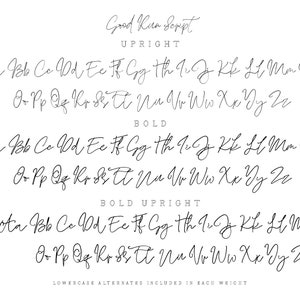 Good Script
UPRIGHT
Bb Cc Dd Ee Ff Gg Hh Ii Jj Kk Ll Mm
Oo Pp Qq Rr Ss Tt Uu Vv Ww Xx Yy Zz
BOLD
Bb Cc Dd Ee Ff Gg Hh Ii Jj Kk Ll Mm
Oo Pp Qq Rr Ss Tt Uu Vv Ww Xx Yy Zz
BOLD UPRIGHT
Aa Bb Cc Dd Ee Ff Gg Hh Ii Jj Kk Ll Mm
Oo Pp Qq Rr Ss Tt Uu Vv Ww Xx Yy Zz
LOWERCASE ALTERNATES INCLUDED IN EACH WEIGHT